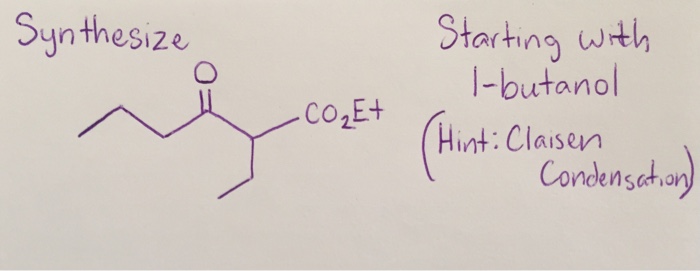 Synthesize
Starting with
1-butanol
O
CO₂Et
(Hint: Claisen
Condensation)